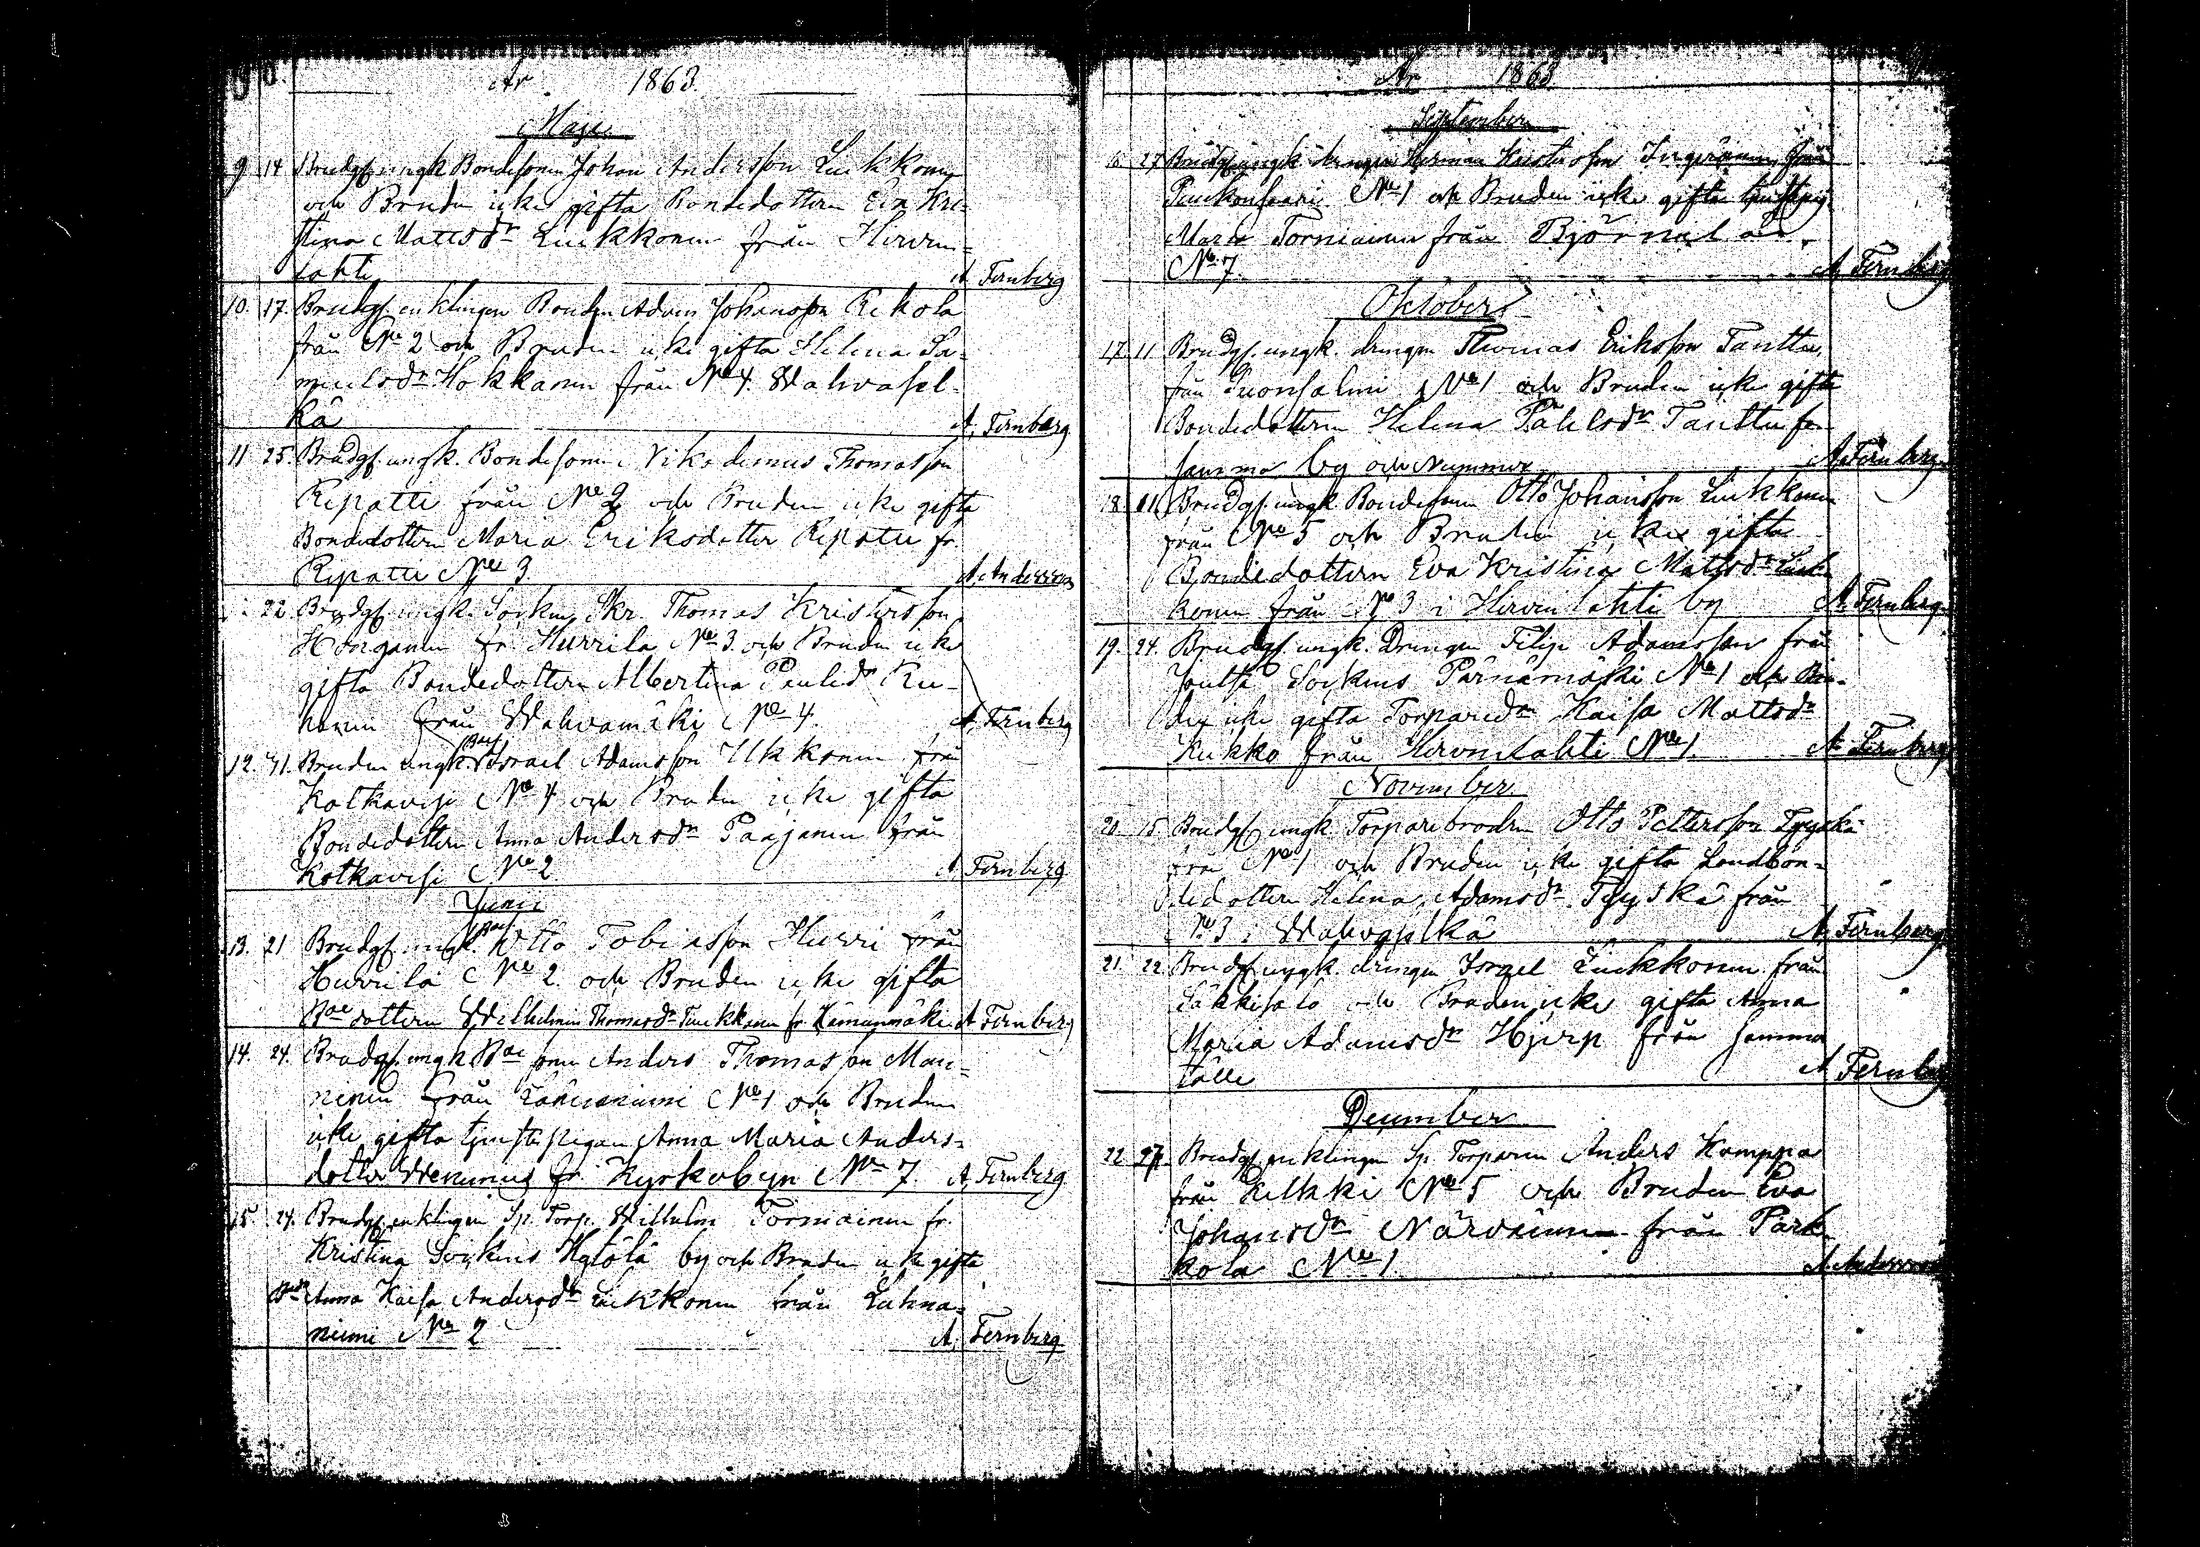 År 1863.
Maji
9 14 Brudg. ungk Bondesonen Johan Andersson Liukkonen
och Bruden icke gifta Bondedottern Eva Kri=
stina Mattsdr Liukkonen från Hirven=
lahti A. Fernberg
10. 17. Brudg. enklingen Bonden Adam Johansson Rekola
från No 2 och Bruden icke gifta Helena Sa=
muelsdr Hokkanen från No 4. Wahvasel=
kä A. Fernberg
11 25. Brudg. ungk. Bondesonen Nikodemus Thomasson
Ripatti från No 2 och Bruden icke gifta
Bondedottern Maria Eriksdotter Ripatti fr.
Ripatti No 3 A. Anderson
22. Brudg. ungk. Socken Skr. Thomas Kristersson
Horganen fr. Hurrila No 3. och Bruden icke
gifta Bondedottern Albertina Paulsdr Ku-
honen från Wahvamäki No 4. A. Fernberg
12. 31. Bruden ungk. Bos Israel Adamsson Ukkonen från
Kotkavesi No 4 och Bruden icke gifta
Bondedottern Anna Andersdr Paajanen från
Kotkavesi No 2 A Fernberg
Junii
13. 21 Brudg. ungk. Bos Otto Tobiasson Hurri från
Hurrila No 2. och Bruden icke gifta
Bde dottern Wilhelmin Thomasdr Tuukkanen fr. Hämänmäki A Fernberg
14. 24. Brudg. ungk. Bde sonen Anders Thomasson Man=
ninen från Lähenniemi No 1 och Bruden
icke gifta tjenstepigan Anna Maria Anders=
dotter Wenenius fr. Kyrkobyn No 7. A. Fernberg
15. 24. Brudg. enklingen Sp. Torp. Wilhelm Torniainen fr.
Kristina Sockens Hytölä by och Bruden icke gifta
Bdr Anna Kaisa Andersdr Liukkonen från Luhna=
niemi No 2 A. Fernberg
År 1863
September
6 27 Brudg. ungk drengen Herman Kristersson Ingeroinen från
Paukonsaari No 1 och Bruden icke gifta tjenstepig.
Maria Torniainen från Björnsalo
No 7. A. Fernberg
Oktober
17 11 Brudg. ungk. drengen Thomas Eriksson Tanttu,
från Suonsalmi No 1 och Bruden icke gifta
Bondedottern Helena Påhlsdr Tanttu från
samma by och Nummer A. Fernberg
18. 11. Brudg. ungk Bondesonen Otto Johansson Liukkonen
från No 5 och Bruden icke gifta
Bondedottern Eva Kristina Mattsdr Liuk=
konen från No 3 i Hirvenlahti by A. Fernberg
19. 24. Brudg. ungk. Drengen Filip Adamsson från
Joutsa Sockens Pärnämäki No 1 och Bru=
den icke gifta Torparedr Kaisa Mattsdr
Kukko från Hirvenlahti No 1. A. Fernberg
November
20 15 Brudg. ungk. Torparebrodren Otto Pettersson Tyyskä
från No 1 och Bruden icke gifta Landbon=
dedottern Helena Adamsdr Tyyskä från
No 3 i Wahvaselkä A. Fernberg
21. 22. Brudg ungk. drengen Israel Liukkonen från
Läkkisalo och Bruden icke gifta Anna
Maria Adamsdr Hjerp från samma
ställe A Fernberg
December
22 27. Brudg. enklingen Sp. Torparen Anders Kamppa
från Kilkki No 5 och Bruden Eva
Johansdr Närväinen från Park=
kola No 1 A. Anderson